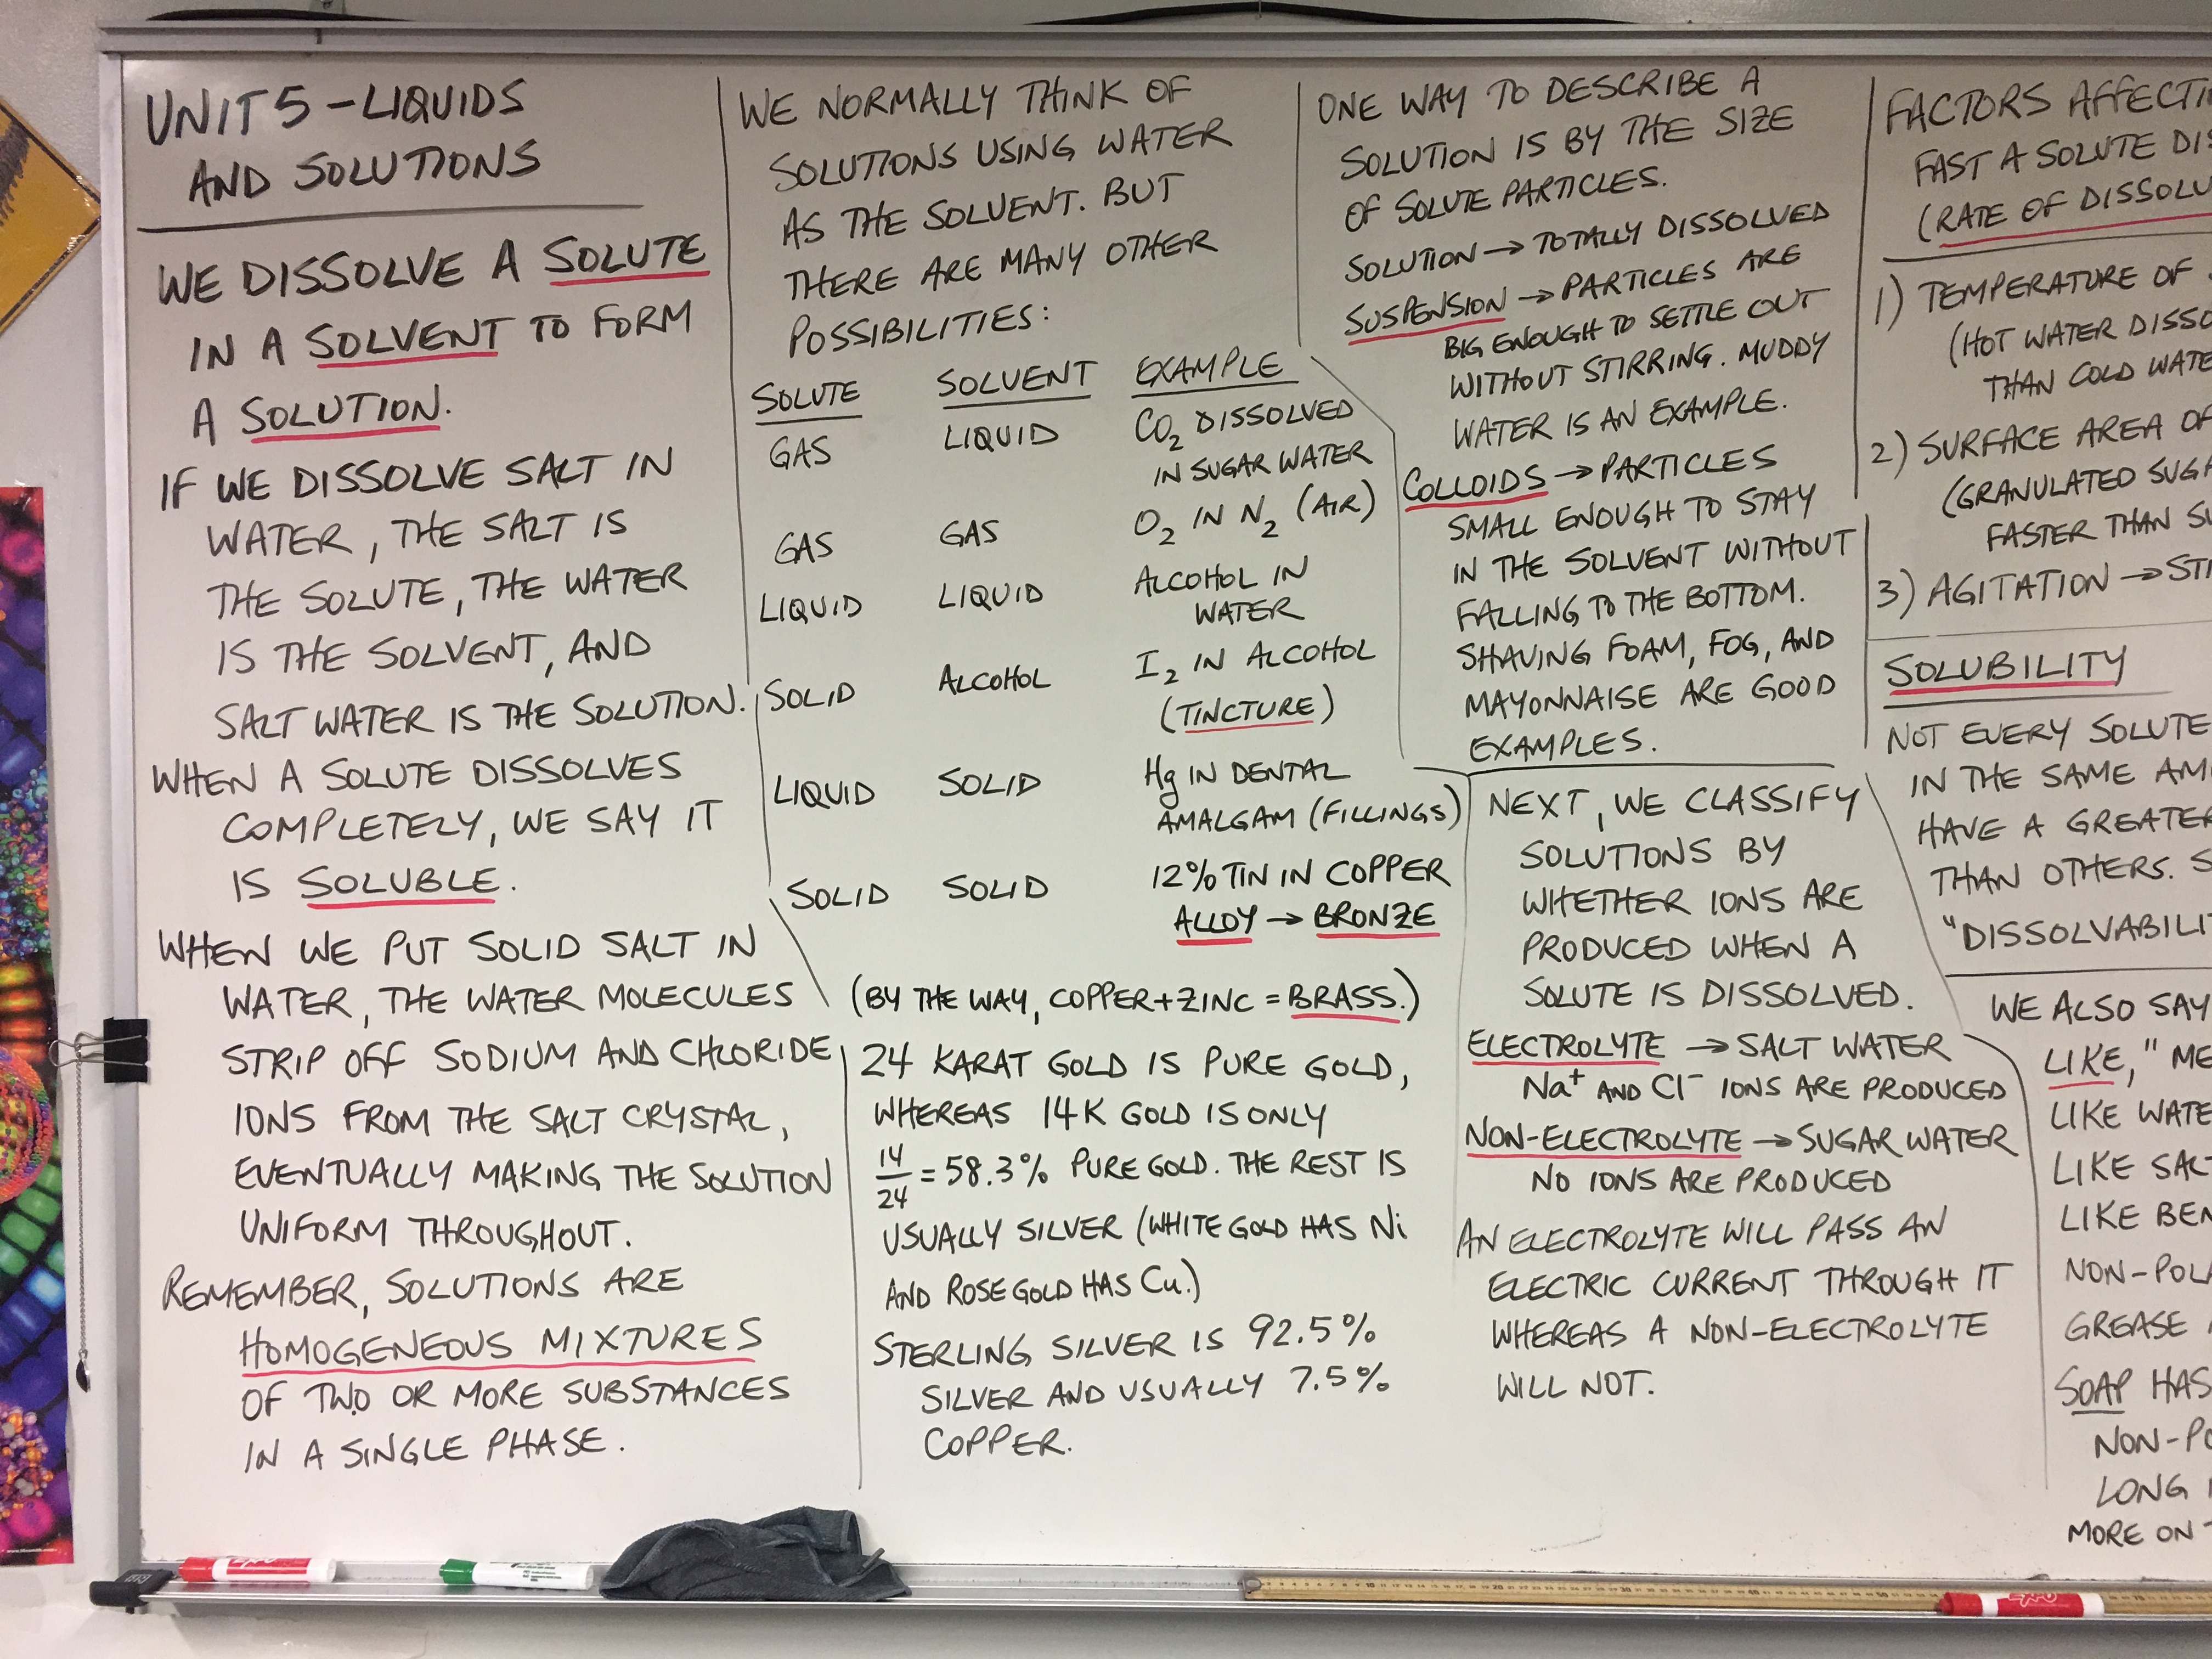 UNIT 5 - LIQUIDS
AND SOLUTIONS
WE DISSOLVE A SOLUTE
IN A SOLVENT TO FORM
A SOLUTION.
IF WE DISSOLVE SALT IN
WATER, THE SALT IS
THE SOLUTE, THE WATER
IS THE SOLVENT, AND
SALT WATER IS THE SOLUTION.
WHEN A SOLUTE DISSOLVES
COMPLETELY, WE SAY IT
IS SOLUBLE.
WHEN WE PUT SOLID SALT IN
WATER, THE WATER MOLECULES
STRIP OFF SODIUM AND CHLORIDE
IONS FROM THE SALT CRYSTAL,
EVENTUALLY MAKING THE SOLUTION
UNIFORM THROUGHOUT.
REMEMBER, SOLUTIONS ARE
HOMOGENEOUS MIXTURES
OF TWO OR MORE SUBSTANCES
IN A SINGLE PHASE.
WE NORMALLY THINK OF
SOLUTIONS USING WATER
AS THE SOLVENT. BUT
THERE ARE MANY OTHER
POSSIBILITIES:
SOLUTE SOLVENT EXAMPLE
GAS LIQUID CO2 DISSOLVED
IN SUGAR WATER
GAS GAS O2 IN N2 (AIR)
LIQUID LIQUID ALCOHOL IN
WATER
SOLID ALCOHOL I2 IN ALCOHOL
(TINCTURE)
LIQUID SOLID Hg IN DENTAL
AMALGAM (FILLINGS)
SOLID SOLID 12% TIN IN COPPER
ALLOY → BRONZE
(BY THE WAY, COPPER + ZINC = BRASS.)
24 KARAT GOLD IS PURE GOLD,
WHEREAS 14K GOLD IS ONLY
14/24 = 58.3% PURE GOLD. THE REST IS
USUALLY SILVER (WHITE GOLD HAS Ni
AND ROSE GOLD HAS Cu.)
STERLING SILVER IS 92.5%
SILVER AND USUALLY 7.5%
COPPER.
ONE WAY TO DESCRIBE A
SOLUTION IS BY THE SIZE
OF SOLUTE PARTICLES.
SOLUTION → TOTALLY DISSOLVED
SUSPENSION → PARTICLES ARE
BIG ENOUGH TO SETTLE OUT
WITHOUT STIRRING. MUDDY
WATER IS AN EXAMPLE.
COLLOIDS → PARTICLES
SMALL ENOUGH TO STAY
IN THE SOLVENT WITHOUT
FALLING TO THE BOTTOM.
SHAVING FOAM, FOG, AND
MAYONNAISE ARE GOOD
EXAMPLES.
NEXT, WE CLASSIFY
SOLUTIONS BY
WHETHER IONS ARE
PRODUCED WHEN A
SOLUTE IS DISSOLVED.
ELECTROLYTE → SALT WATER
Na+ AND Cl- IONS ARE PRODUCED
NON-ELECTROLYTE → SUGAR WATER
NO IONS ARE PRODUCED
AN ELECTROLYTE WILL PASS AN
ELECTRIC CURRENT THROUGH IT
WHEREAS A NON-ELECTROLYTE
WILL NOT.
FACTORS AFFECTI
FAST A SOLUTE DIS
(RATE OF DISSOLU
1) TEMPERATURE OF
(HOT WATER DISSO
THAN COLD WATE
2) SURFACE AREA OF
(GRANULATED SUGA
FASTER THAN SU
3) AGITATION → STI
SOLUBILITY
NOT EVERY SOLUTE
IN THE SAME AM
HAVE A GREATER
THAN OTHERS. S
"DISSOLVABILI
WE ALSO SAY
LIKE," ME
LIKE WATE
LIKE SAL
LIKE BEN
NON-POLA
GREASE
SOAP HAS
NON-PO
LONG
MORE ON
EXPO